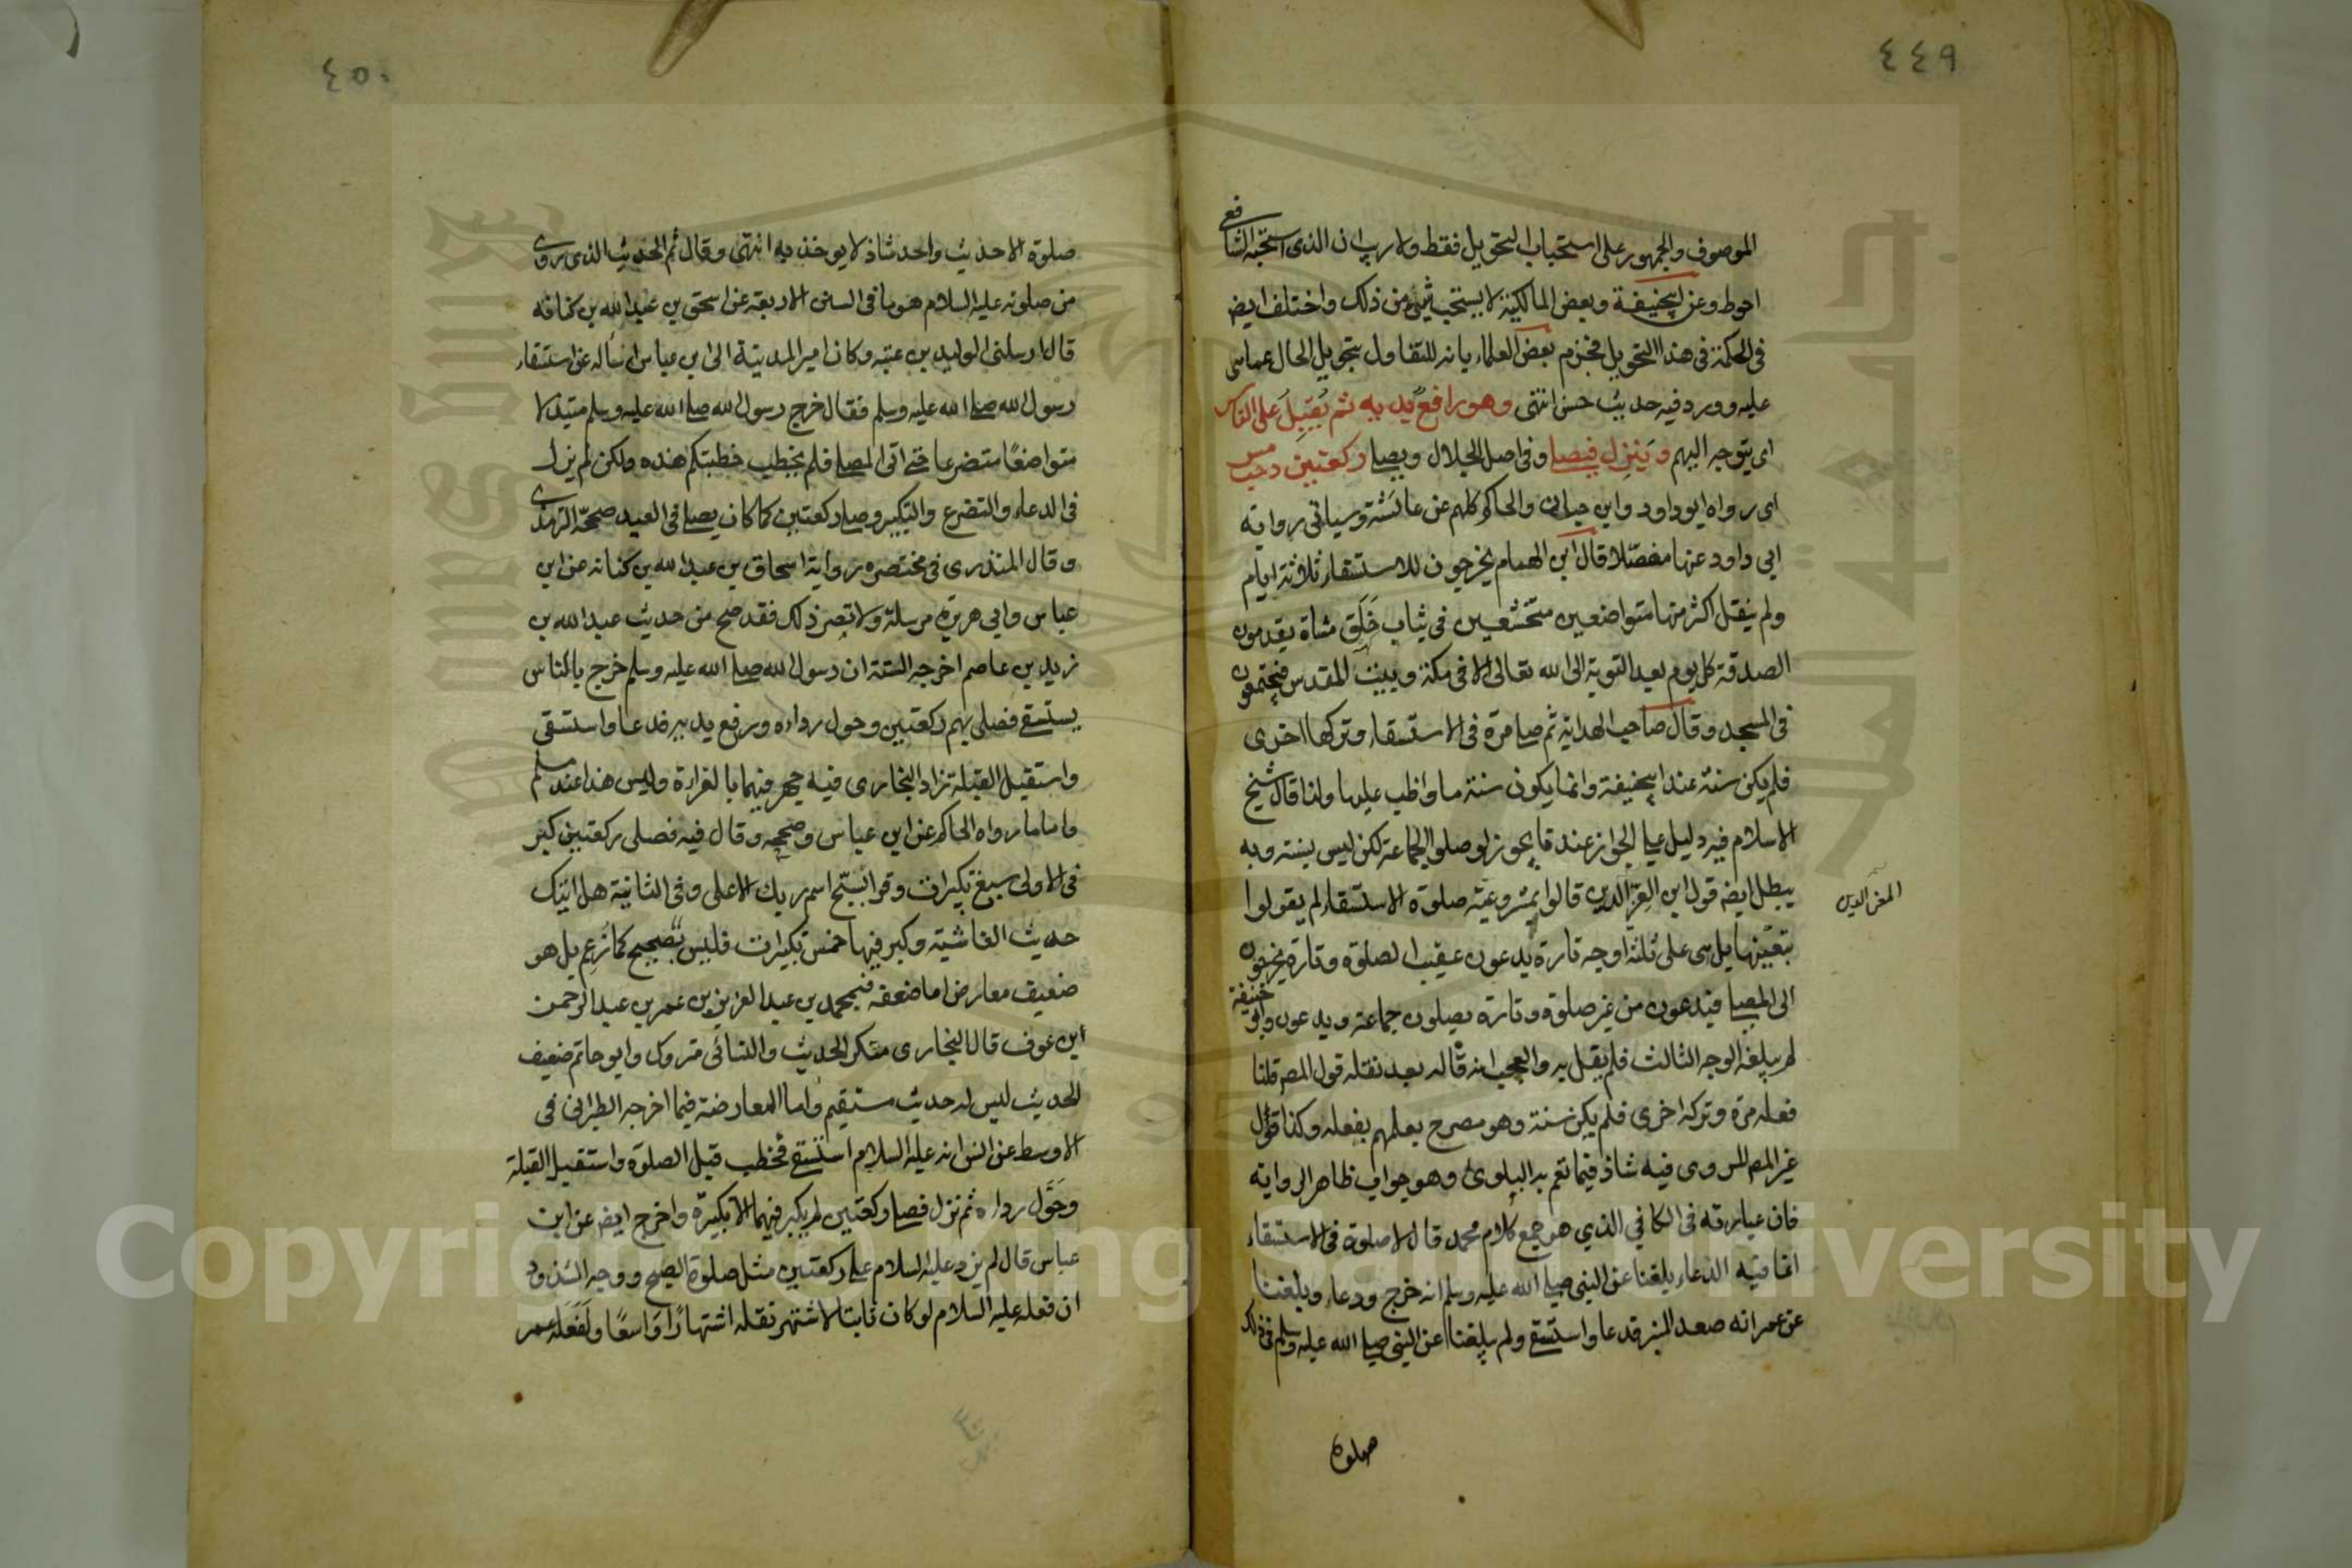 ٤٤٩
الموصوف والجمهور على استحباب التحويل فقط ولا ريب ان الذى استحبه الشافعى
احوط وعن ابيحنيفة وبعض المالكية لا يستحب شئ من ذلك واختلف ايض
فى الحكمة فى هذا التحويل فجزم بعض العلماء بانه للتفاول بتحويل الحال عما هى
عليه وورد فيه حديث حسن انتهى وهو رافع يديه ثم يقبل على الناس
اى يتوجه اليهم وينزل فيصلى وفى اصل الجلال ويصلى ركعتين د حب مس
اى رواه ابو داود وابن حبان والحاكم كلهم عن عائشة وسياتى رواية
ابى داود عنها مفصلا قال ابن الهمام يخرجون للاستسقاء ثلاثة ايام
ولم ينقل اكثر منها متواضعين متخشعين فى ثياب خلق مشاة يقدمون
الصدقة كل يوم بعد التوبة الى الله تعالى الا فى مكة وبيت المقدس فيجتمعون
فى المسجد وقال صاحب الهداية ثم صلى مرة فى الاستسقاء وتركها اخرى
فلم يكن سنة عند ابيحنيفة وانما يكون سنة ما واظب عليها ولذا قال شيخ
الاسلام فيه دليل على الجواز عندنا يجوز لو صلوا بالجماعة لكن ليس بسنة وبه
يبطل ايضه قول ابن العز الدين قالوا بمشروعية صلوة الاستسقاء لم يقولوا
المعز الدين
بتعينها بل هى على ثلثة اوجه تارة يدعون عقيب الصلوة وتارة يخرجون
الى المصلى فيدعون من غير صلوة وتارة يصلون جماعة ويدعون وابو حنيفة
لم يبلغه الوجه الثالث فلم يقل به والعجب انه قاله بعد نقله قول المص قلنا
فعله مرة وتركه اخرى فلم يكن سنة وهو مصرح بعلمهم بفعله وكذا قول
غير المص المروى فيه شاذ فيما تعم به البلوى وهو جواب ظاهر الرواية
فان عبارته فى الكافي الذي هو جمع كلام محمد قال لا صلوة فى الاستسقاء
انما فيه الدعاء بلغنا عن النبى صلى الله عليه وسلم انه خرج ودعا وبلغنا
عن عمر انه صعد المنبر فدعا واستسقى ولم يبلغنا عن النبى صلى الله عليه وسلم فى ذلك
صلوة
٤٥٠
صلوة الا حديث واحد شاذ لا يوخذ به انتهى وقال ثم الحديث الذى روى
من صلوته عليه السلام هو ما فى السنن الاربعة عن اسحق بن عبد الله بن كنانه
قال ارسلنى الوليد بن عتبه وكان امير المدينة الى ابن عباس اسأله عن استسقاء
رسول الله صلى الله عليه وسلم فقال خرج رسول الله صلى الله عليه وسلم متبذلا
متواضعا متضرعا حتى اتى المصلى فلم يخطب خطبتكم هذه ولكن لم يزل
فى الدعاء والتضرع والتكبير وصلى ركعتين كما كان يصلى فى العيد صححه الترمذى
وقال المنذرى فى مختصره رواية اسحاق بن عبد الله بن كنانه عن ابن
عباس وابى هريرة مرسلة ولا تضر ذلك فقد صح من حديث عبد الله بن
زيد بن عاصم اخرجه الستة ان رسول الله صلى الله عليه وسلم خرج بالناس
يستسقى فصلى بهم ركعتين وحول رداءه ورفع يديه فدعا واستسقى
واستقبل القبلة زاد البخارى فيه جهر فيهما بالقراءة وليس هذا عند مسلم
واما ما رواه الحاكم عن ابن عباس وصححه وقال فيه فصلى ركعتين كبر
فى الاولى سبع تكبيرات وقرا بسبح اسم ربك الاعلى وفى الثانية هل اتيك
حديث الغاشية وكبر فيها خمس تكبيرات فليس بصحيح كما زعم بل هو
ضعيف معارض اما ضعفه فبمحمد بن عبد العزيز بن عمر بن عبد الرحمن
ابن عوف قال البخارى منكر الحديث والنسائى متروك وابو حاتم ضعيف
الحديث ليس له حديث مستقيم واما المعارضة فيما اخرجه الطبرانى فى
الاوسط عن انس انه عليه السلام استسقى فخطب قبل الصلوة واستقبل القبلة
وحول رداءه ثم نزل فصلى ركعتين لم يكبر فيهما الا تكبيرة واخرج ايض عن ابن
عباس قال لم يزد عليه السلام على ركعتين مثل صلوة الصبح ووجه الشذوذ
ان فعله عليه السلام لو كان ثابتا لاشتهر نقله اشتهارا واسعا ولفعله عمر
Copyright © King Saud University